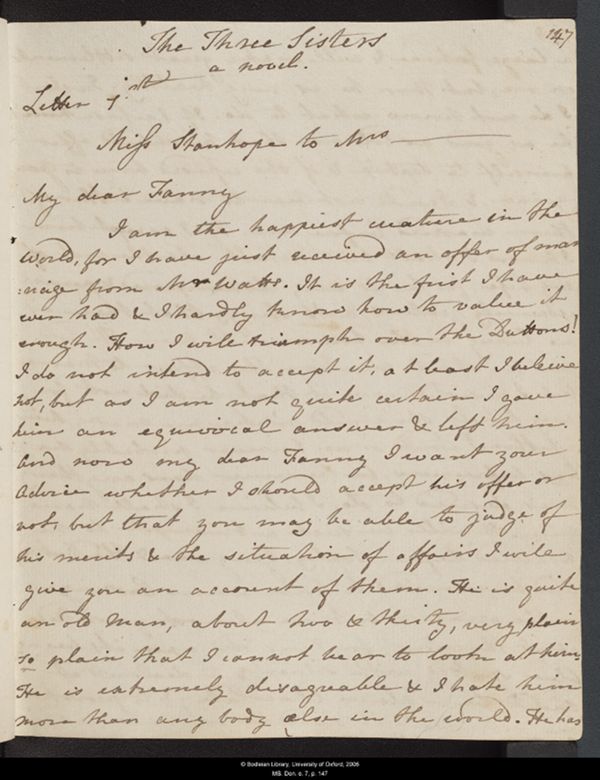 147
The Three Sisters
a novel.
Letter 1st
Miss Stanhope to Mrs
My dear Fanny
I am the happiest creature in the
World, for I have just received an offer of mar
:riage from Mr Watts. It is the first I have
ever had & I hardly know how to value it
enough. How I will triumph over the Duttons!
I do not intend to accept it, at least I beleive
not, but as I am not quite certain I gave
him an equivocal answer & left him.
And now my dear Fanny I want your
Advice whether I should accept his offer or
not, but that you may be able to judge of
his merits & the situation of affairs I will
give you an account of them. He is quite
an old Man, about two & thirty, very plain
so plain that I cannot bear to look at him.
He is extremely disagreable & I hate him
more than any body else in the world. He has
© Bodleian Library, University of Oxford, 2006
MS. Don. e. 7, p. 147